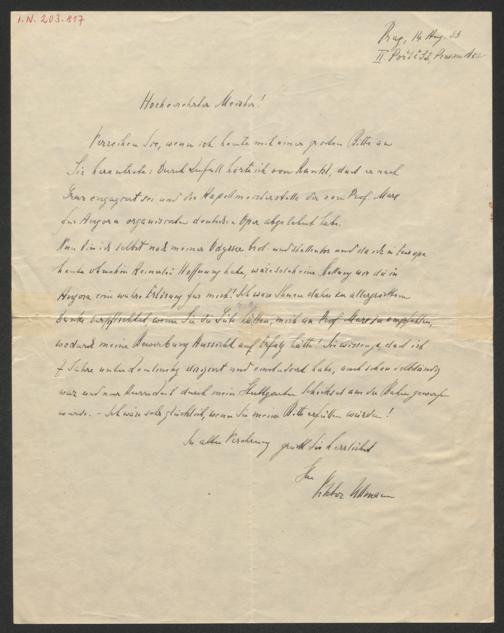 I.N. 203.817
Prag, 14 Aug. 33
II Poříč 32, Pension
Hochverehrter Meister!
Verzeihen Sie, wenn ich heute mit einer großen Bitte an
Sie herantrete: Durch Zufall hörte ich von, dass er nach
Graz engagiert sei und die Kapellmeisterstelle der von Prof. Marx
für Angora organisierten deutschen Oper abgelehnt habe.
Nun bin ich selbst nach meiner Odyssee brot- und stellenlos und da ich in Europa
heute ohnehin keinerlei Hoffnung habe, wäre solch eine
Angora eine wahre Erlösung für mich! Ich wäre Ihnen daher zu allergrösstem
Danke verpflichtet, wenn Sie die Güte hätten, mich an Prof. Marx zu empfehlen,
wodurch meine Bewerbung Aussicht auf Erfolg hätte! Sie wissen ja, dass ich
7 Jahre unter Zemlinsky dirigiert und einstudiert habe, auch schon selbständig
war und nur durch mein Stuttgarter Schicksal aus der Bahn geworfen
wurde. – Ich wäre sehr glücklich, wenn Sie meine Bitte erfüllen würden!
In alter Verehrung grüßt Sie herzlichst
Ihr
Viktor Ullmann